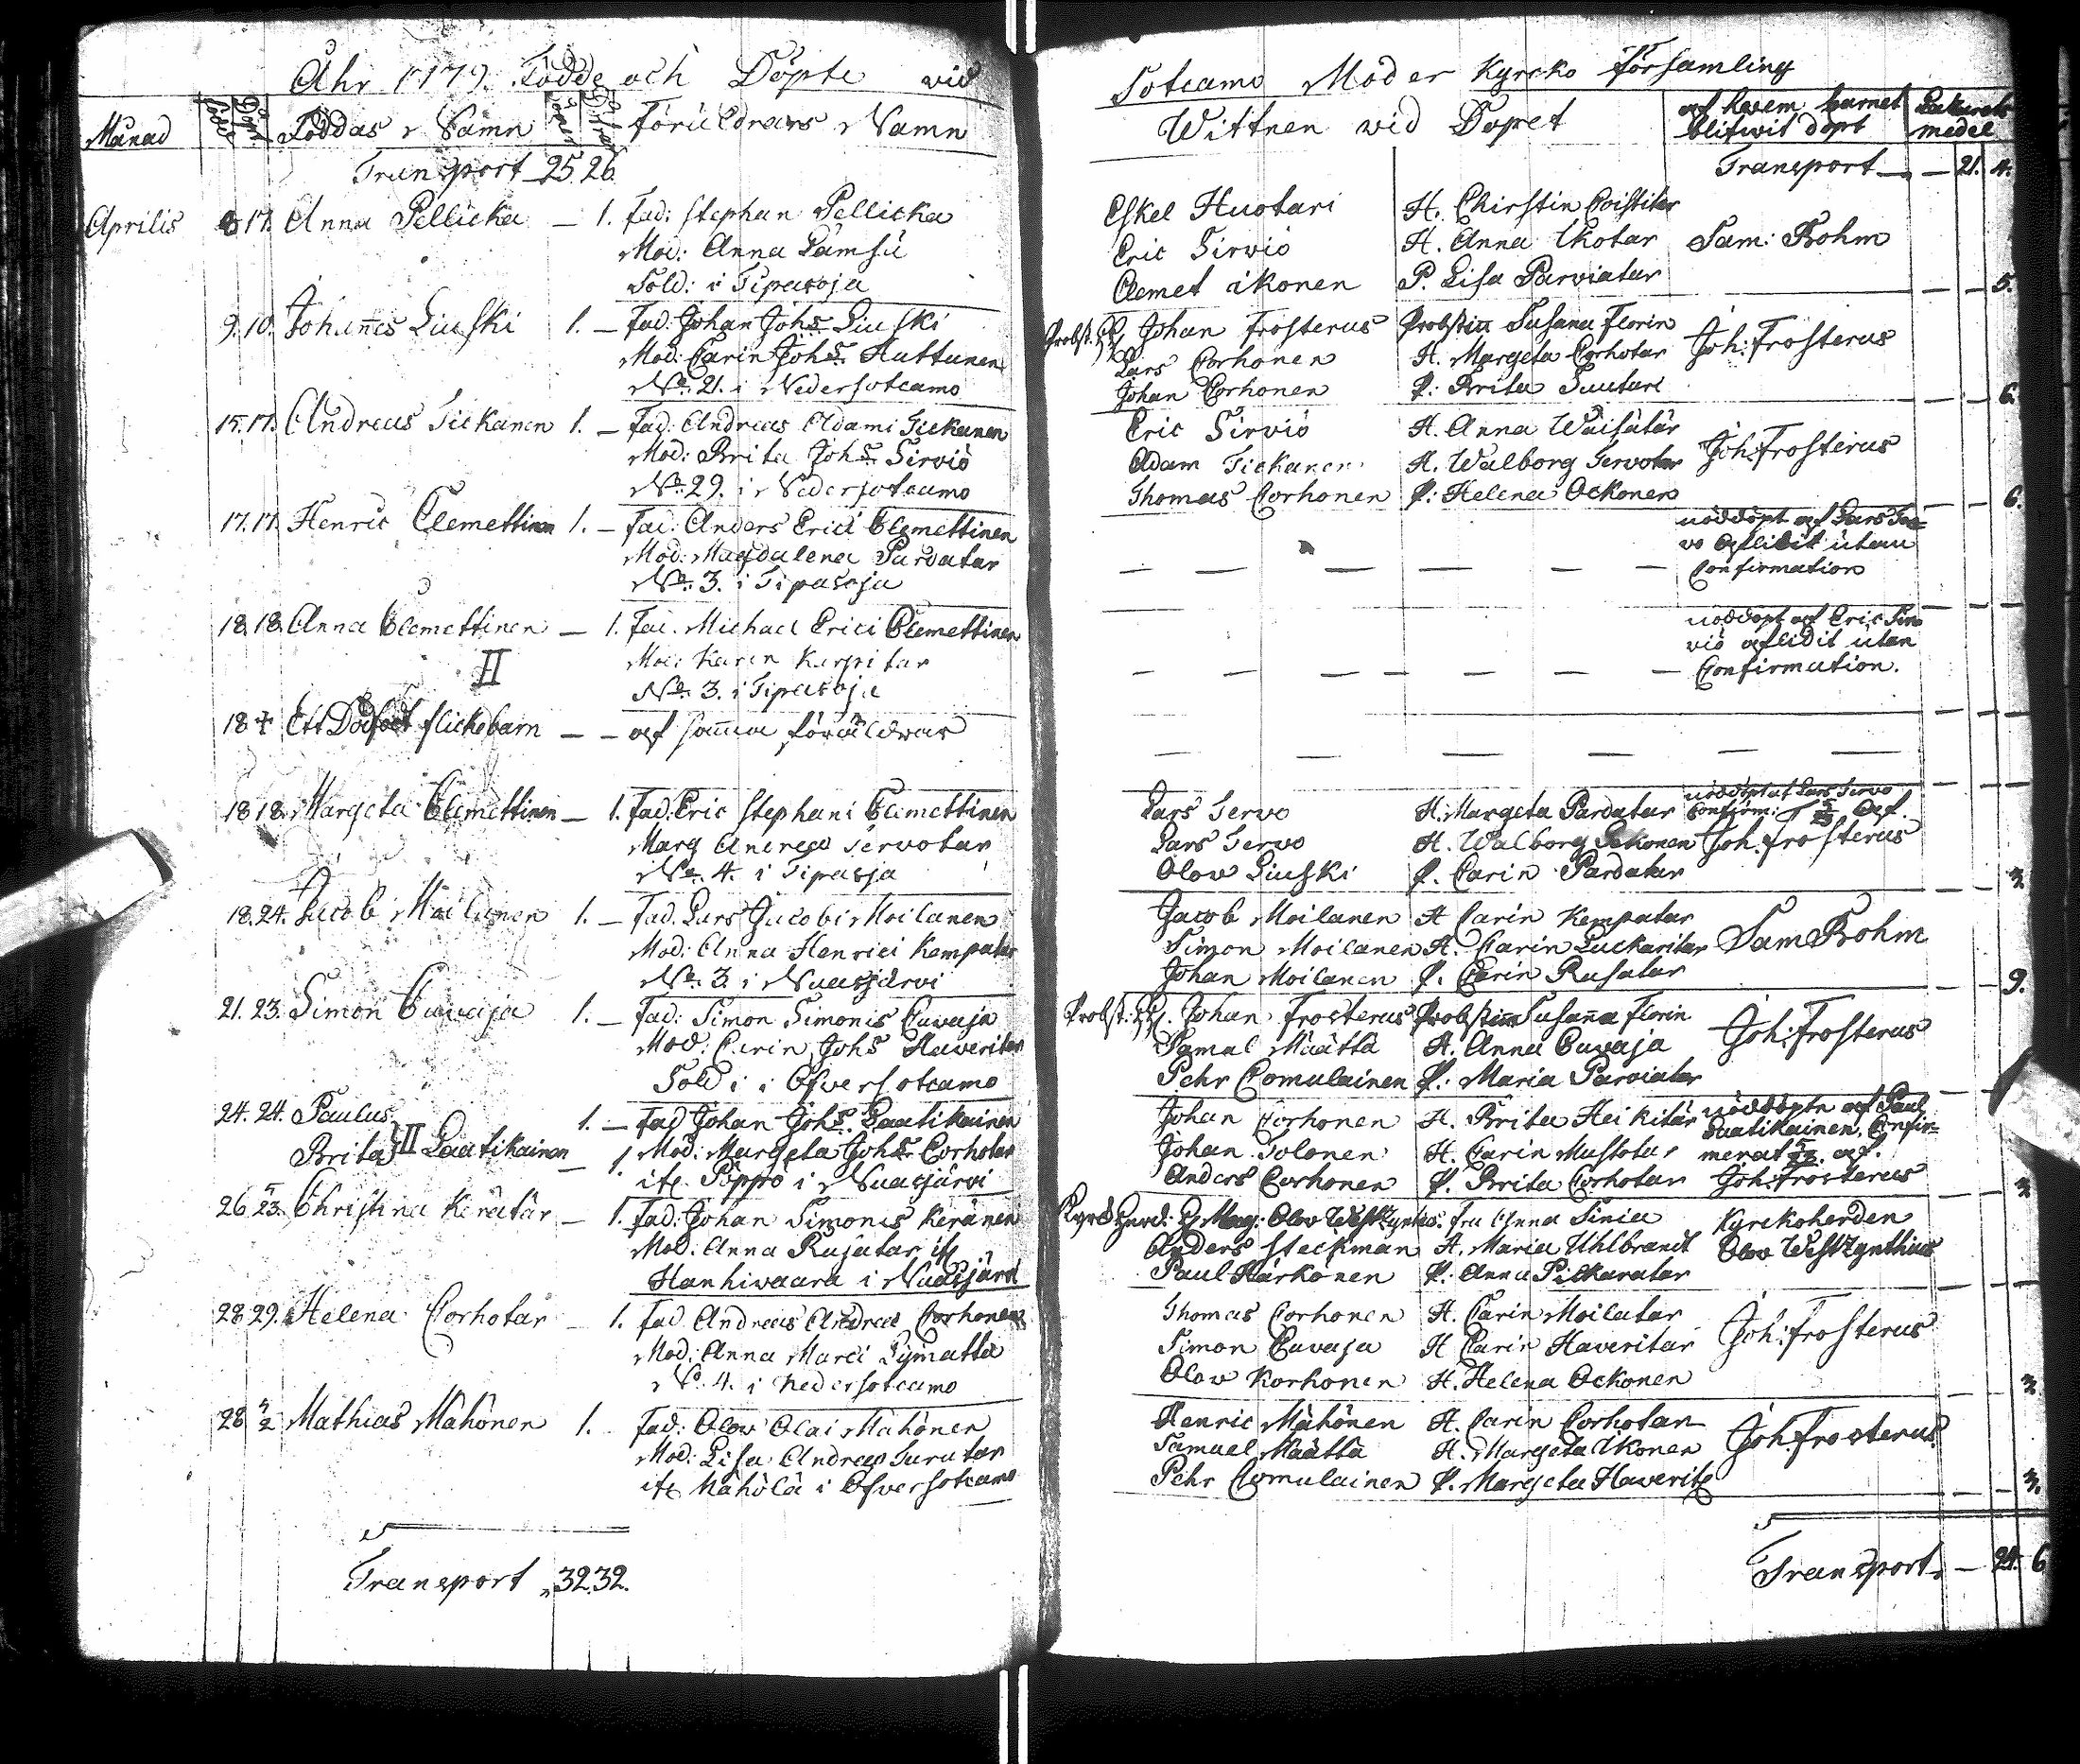 Åhr 1779. Födde och Döpte vid
Månad Födde Döpt Föddas Namn Söner Döttrar Föräldrars Namn
Transport 25. 26.
Aprilis 8 17. Anna Pellicka — 1. Fad: Stephan Pellicka
Mod: Anna Lämsä
Sold: i Tipasoja
9. 10. Johannes Liuski 1. — Fad: Johan Johs Liuski
Mod: Carin Johs Huttunen
No. 21. i Nedersotcamo
15. 17. Andreas Tickanen 1. — Fad: Andreas Adami Tickanen
Mod: Brita Johs Sirviö
No. 29. i Nedersotcamo
17. 17. Henric Clemettinen 1. — Fad: Anders Erici Clemettinen
Mod: Magdalena Pardatar
No. 3. i Tipasoja
18. 18. Anna Clemettinen — 1. Fad. Michael Erici Clemettinen
II Mod: Karin Karpitar
No. 3. i Tipasoja
18 + Ett Dödfödt flickebarn — — af samma föräldrar
18 18. Margeta Clemettinen — 1. Fad: Eric Stephani Clemettinen
Marg Andreæ Tervotar
No. 4. i Tipasoja
18. 24. Jacob Moilanen 1. — Fad. Lars Jacobi Moilanen
Mod: Anna Henrici Kempatar
No. 3. i Nuasjärvi
21. 23. Simon Cuvaja 1. — Fad: Simon Simonis Cuvaja
Mod: Carin Johs Haveritar
Sold i i Öfversotcamo
24. 24. Paulus 1. — Fad Johan Johs. Laatikainen
Brita } II Laatikainen — 1. Mod: Margeta Johs Corhotar
itz Pöppö i Nuasjärvi
26 5/23. Christina Kerätär — 1. Fad: Johan Simonis Keränen
Mod: Anna Rusatar itz
Hanhivaara i Nuasjärvi
28 29. Helena Corhotar — 1. Fad. Andreas Andreæ Corhonen
Mod: Anna Marci Lymatta
No. 4. i Nedersotcamo
28 5/2 Mathias Mähönen 1. Fad: Olov Olai Mähönen
Mod: Lisa Andreæ Turutar
itz Mähölä i Öfversotcamo
Transport 32. 32.
Sotcamo Moder Kyrcko Församling
Wittnen vid Dopet af hvem barnet blifwit döpt medel
Transport — 21. 4.
Eskel Huotari H. Chirstin Coistitar
Eric Sirviö H. Anna Ikotar Sam: Bohm
Clemet ikonen P. Lisa Parviatar — — 5.
Probst. Johan Frosterus Probstin Susana Florin
Lars Corhonen H. Margeta Corhotar Joh: Frosterus
Johan Corhonen P: Brita Tuutari — — 6.
Eric Sirviö H. Anna Wäisätär
Adam Tickanen H. Walborg Tervotar Joh: Frosterus
Thomas Corhonen P: Helena Ockonen — — 6.
nöddöpt af Lars Ter=
vo aflidit utan
Confirmation
nöddöpt af Eric Sir
viö aflidit utan
Confirmation.
Lars Tervo H. Margeta Pardatar nöddöpt af Lars Tervo
Confirm: 5/23 af
Lars Tervo H. Walborg Ockonen Joh. Frosterus
Olov Liuski P. Carin Pardatar — — 3.
Jacob Moilanen H Carin Kempatar
Simon Moilanen H. Carin Luckaritar Sam Bohm
Johan Moilanen P. Carin Rusatar — — 9.
Probst: Johan Frosterus Probstinn Susanna Florin
Samul Määttä H. Anna Cuvaja Joh: Frosterus
Pehr Comulainen P: Maria Parviatar
Johan Corhonen H. Brita Heikitär nöddöpte af Paul
Laatikainen. Confir=
Johan Tolonen H. Carin Mustotar merat 5/23. af.
Anders Corhonen P. Brita Corhotar Joh: Frosterus — 3.
Mag: Olov Westzynthius. Fru Anna Sinia Kyrckoherden
Anders Steckman H. Maria Uhlbrandt Olov Westzynthius
Paul Härkönen P: Anna Pickaratar
Thomas Corhonen H. Carin Moilatar
Simon Cuvaja H Carin Haveritar Joh: Frosterus
Olov Korhonen H. Helena Ockonen — 3.
Henric Mähönen H. Carin Corhotar
Samuel Määttä H. Margeta Ikonen Joh: Frosterus
Pehr Comulainen P. Margeta Haveritz — — 3.
Transport. — 24. 6